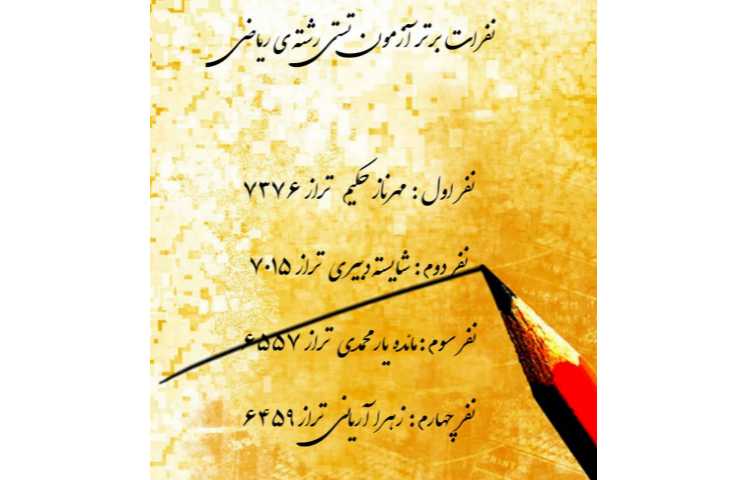 نفرات برتر آزمون تستی رشته ی ریاضی
نفر اول : مهرناز حکیم تراز ۷۳۷۶
نفر دوم : شایسته دبیری تراز ۷۰۱۵
نفر سوم : مائده یارمحمدی تراز ۶۵۵۷
نفر چهارم : زهرا آریانی تراز ۶۴۵۹